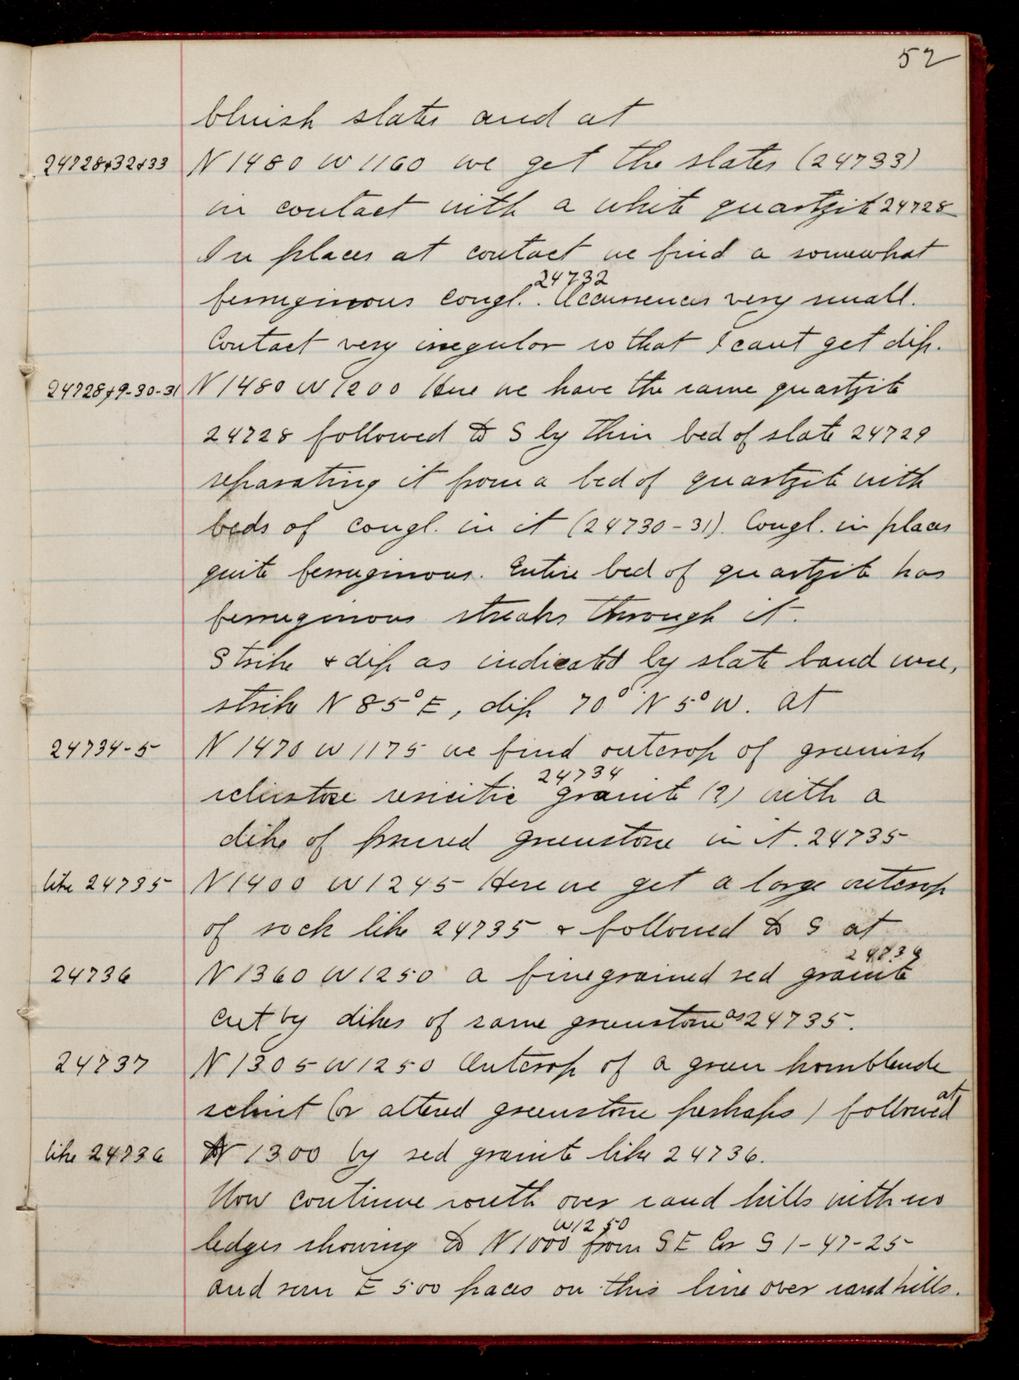 52
bluish slates and at
24728+32+33 N 1480 W 1160 we get the slates (24733)
in contact with a white quartzite 24728
In places at contact we find a somewhat
24732
ferruginous congl. Occurrences very small.
Contact very irregular so that I cant get dip.
24728+9-30-31 N 1480 W 1200 Here we have the same quartzite
24728 followed to S by thin bed of slate 24729
separating it from a bed of quartzite with
beds of congl. in it (24730-31). Congl. in places
quite ferruginous. Entire bed of quartzite has
ferruginous streaks through it.
Strike & dip as indicated by slate band
strike N 85° E, dip 70° N 5° W. At
24734-5 N 1470 W 1175 we find outcrop of greenish
24734
schistose sericitic granite (?) with a
dike of greenstone in it. 24735
like 24735 N 1400 W 1245 Here we get a large outcrop
of rock like 24735 & followed to S at
24736 N 1360 W 1250 a finegrained red granite
cut by dikes of same greenstone as 24735.
24737 N 1305 W 1250 Outcrop of a green hornblende
at
schist (or altered greenstone perhaps) followed
like 24736 N 1300 by red granite like 24736.
Now continue south over sand hills with no
W 1250
ledges showing to N 1000 from SE Cor S 1-47-25
and run E 500 paces on this line over sand hills.